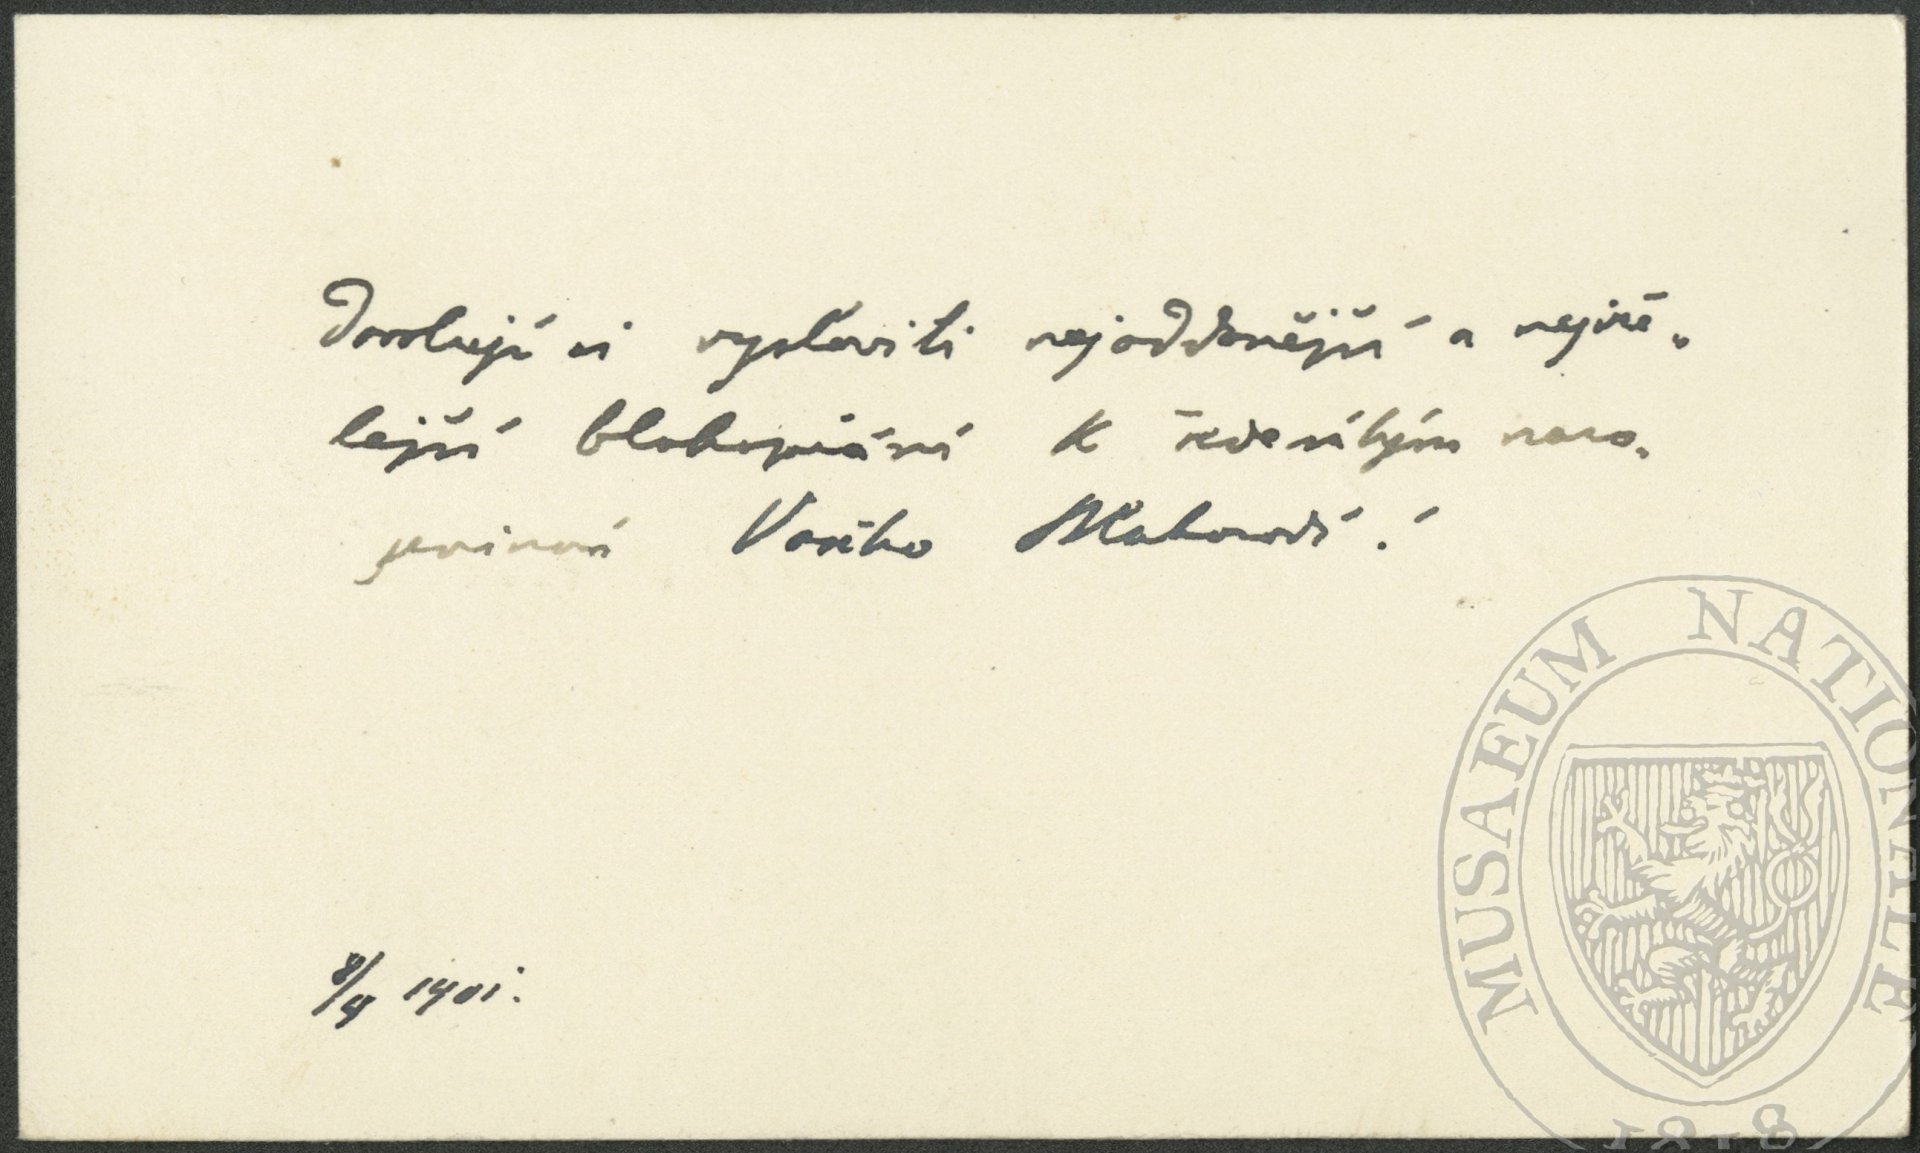 Dovoluji si vysloviti nejoddanější a nejvře-
lejší blahopřání k šedesátým naro-
zeninám Vašeho Blahorodí!
8/9 1901.
MUSAEUM NATIONALE
1818